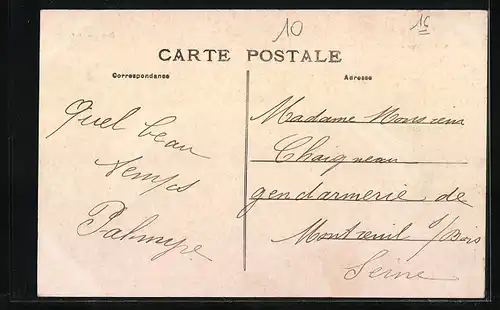 10
15
CARTE POSTALE
Correspondance
Adresse
Quel beau
temps
Palmyre
Madame Monsieur
Chaigneau
gendarmerie de
Montreuil s/Bois
Seine